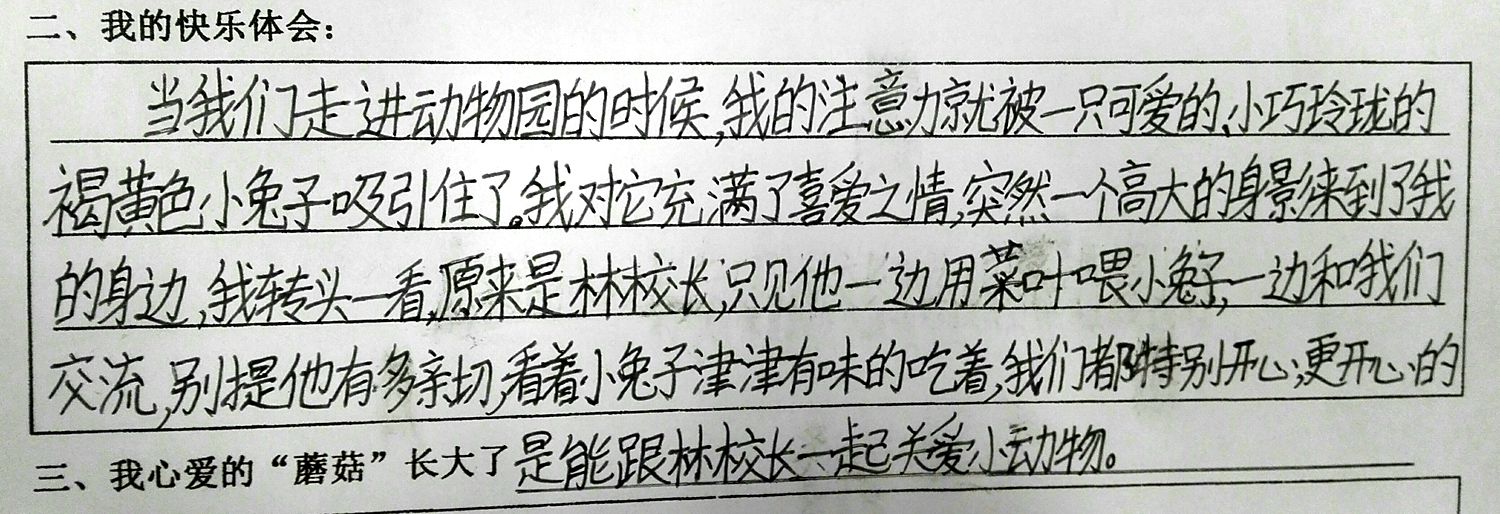 二、我的快乐体会:
当我们走进动物园的时候,我的注意力就被一只可爱的、小巧玲珑的
褐黄色小兔子吸引住了。我对它充满了喜爱之情,突然一个高大的身影来到了我
的身边,我转头一看,原来是林校长,只见他一边用菜叶喂小兔子,一边和我们
交流,别提他有多亲切,看着小兔子津津有味的吃着,我们都特别开心,更开心的
三、我心爱的“蘑菇”长大了 是能跟林校长一起关爱小动物。